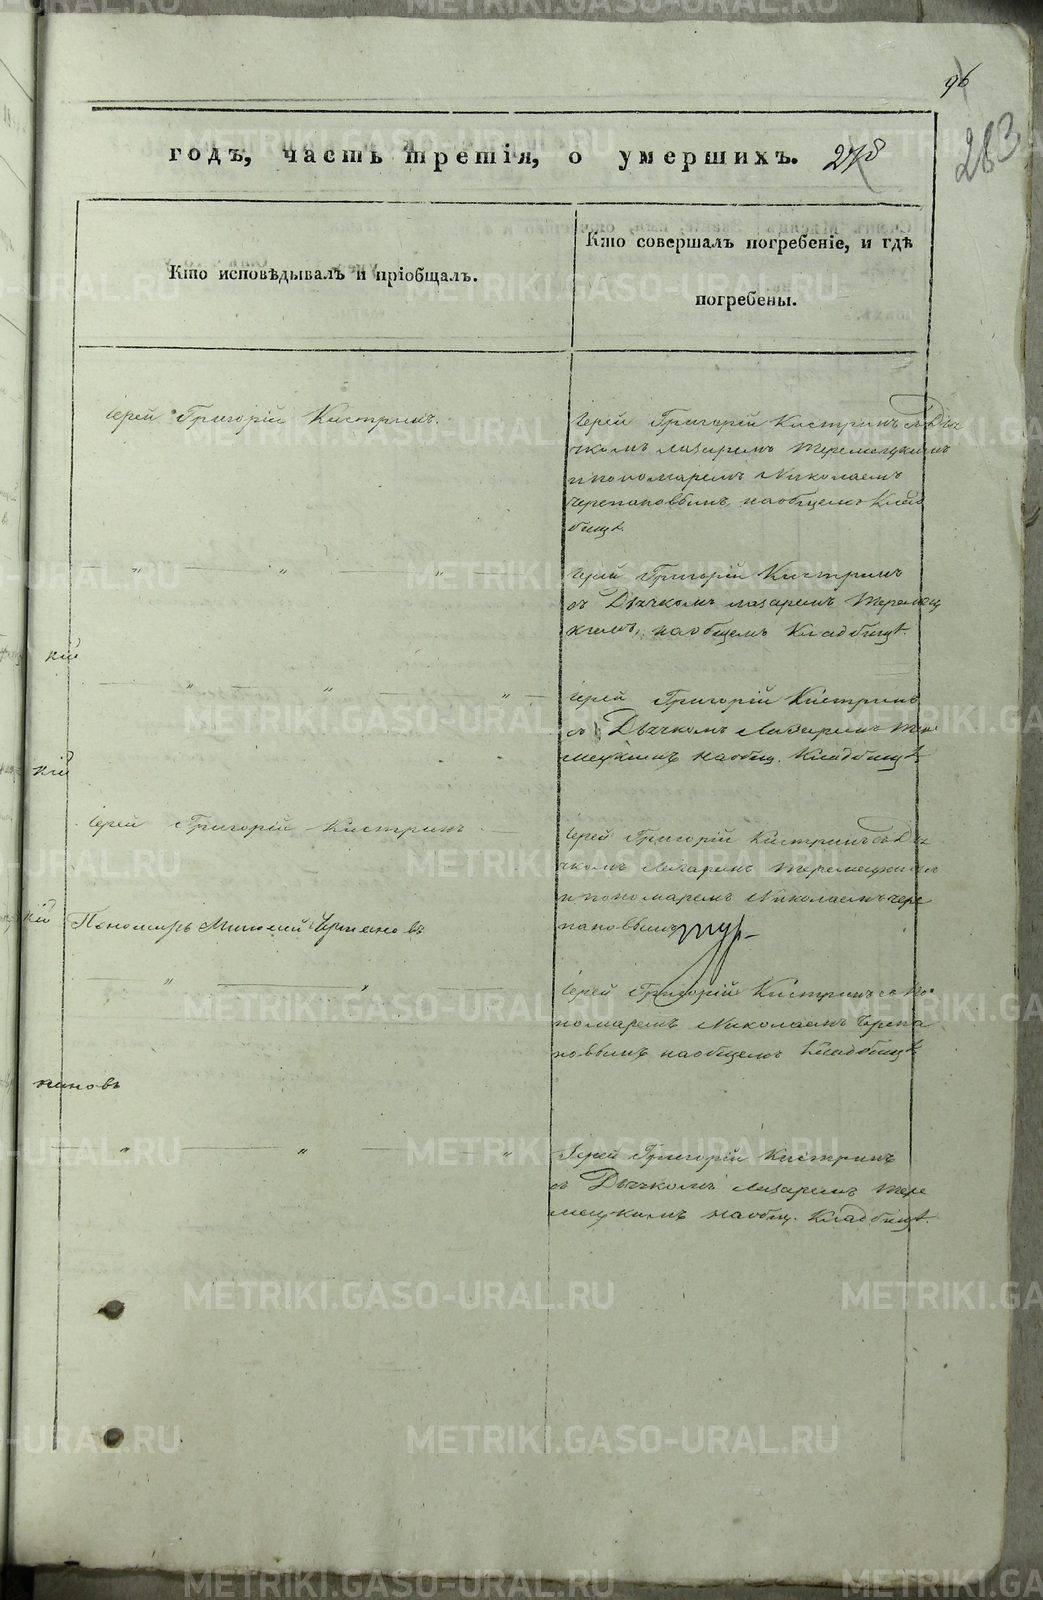 96
283
годъ, часть третія, о умершихъ. 278
Кто исповѣдывалъ и пріобщалъ.
Кто совершалъ погребеніе, и гдѣ
погребены.
Іерей Григорій Кистринъ.
Іерей Григорій Кистринъ съ Дья
чкомъ Лазаремъ Теремецкимъ
и пономаремъ Николаемъ
Черепановымъ на общемъ Клад
бищѣ.
Іерей Григорій Кистринъ
съ Дьячкомъ Лазаремъ Теремец
кимъ, на общемъ Кладбищѣ.
кій
Іерей Григорій Кистринъ
съ Дьячкомъ Лазаремъ Тере
мецкимъ на общ. Кладбищѣ
кій
Іерей Григорій Кистринъ
Іерей Григорій Кистринъ съ Дья
чкомъ Лазаремъ Теремецкимъ
и пономаремъ Николаемъ Чере
пановымъ
кій
Пономарь Николай Черпановъ
Іерей Григорій Кистринъ съ По
номаремъ Николаемъ Черепа
новымъ на общемъ Кладбищѣ
киновъ
Іерей Григорій Кистринъ
съ Дьячкомъ Лазаремъ Тере
мецкимъ на общ. Кладбищѣ.
METRIKI.GASO-URAL.RU